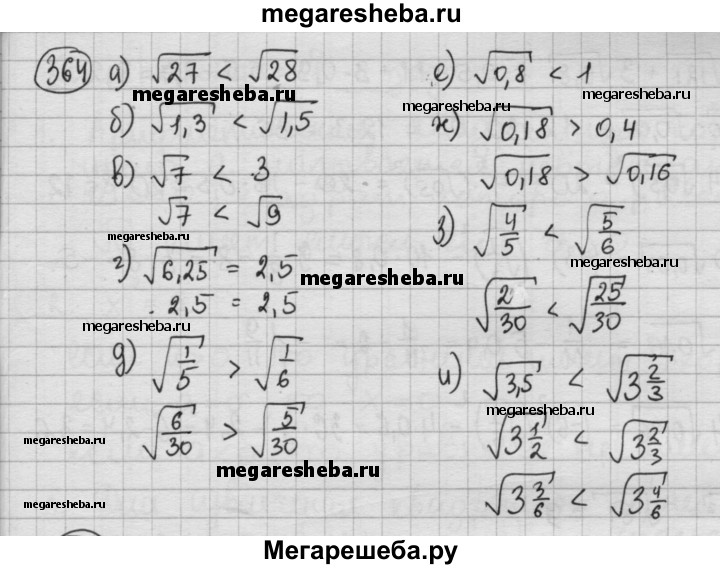 megaresheba.ru
364 а) √27 < √28
megaresheba.ru
б) √1,3 < √1,5
в) √7 < 3
√7 < √9
megaresheba.ru
г) √6,25 = 2,5
megaresheba.ru
2,5 = 2,5
megaresheba.ru
д) √1/5 > √1/6
√6/30 > √5/30
megaresheba.ru
megaresheba.ru
megaresheba.ru
е) √0,8 < 1
megaresheba.ru
ж) √0,18 > 0,4
√0,18 > √0,16
з) √4/5 < √5/6
megaresheba.ru
√2/30 < √25/30
и) √3,5 < √3 2/3
megaresheba.ru
√3 1/2 < √3 2/3
√3 3/6 < √3 4/6
megaresheba.ru
Мегарешеба.ру